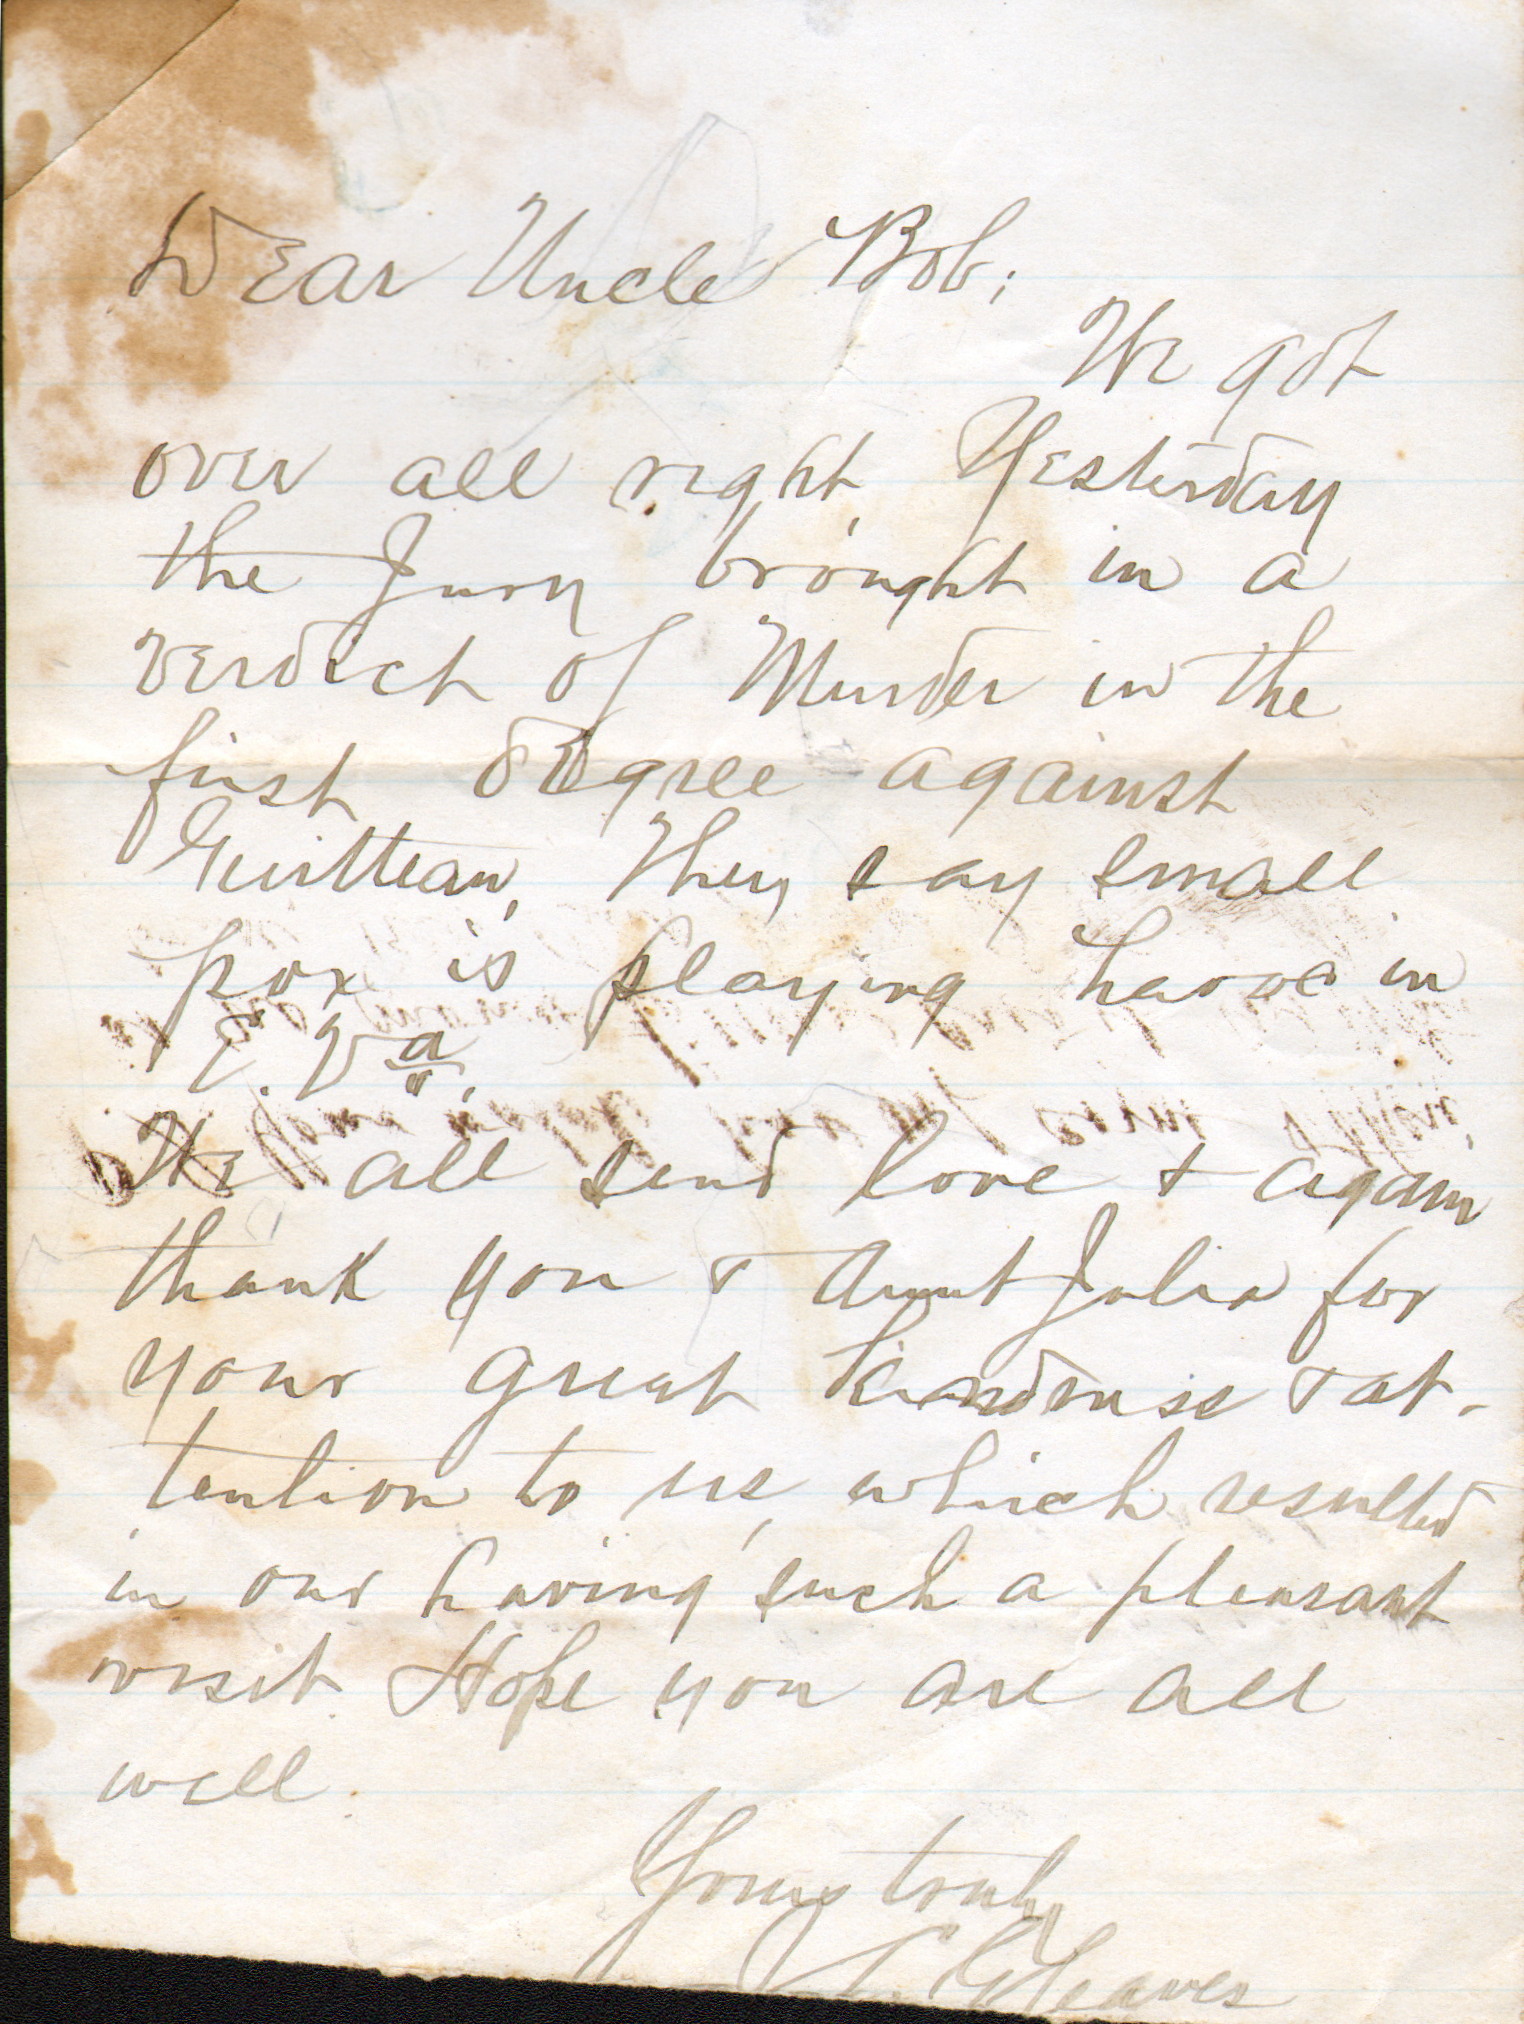 Dear Uncle Bob;
We got
over all right, Yesterday
the Jury brought in a
verdict of Murder in the
first degree against
Guitteau, They say small
pox is playing havoc in
E. Va.
We all send love & again
thank you & Aunt Julia for
your great kindness & at-
tention to us, which resulted
in our having such a pleasant
visit. Hope you are all
well.
Yours truly
Cleaves